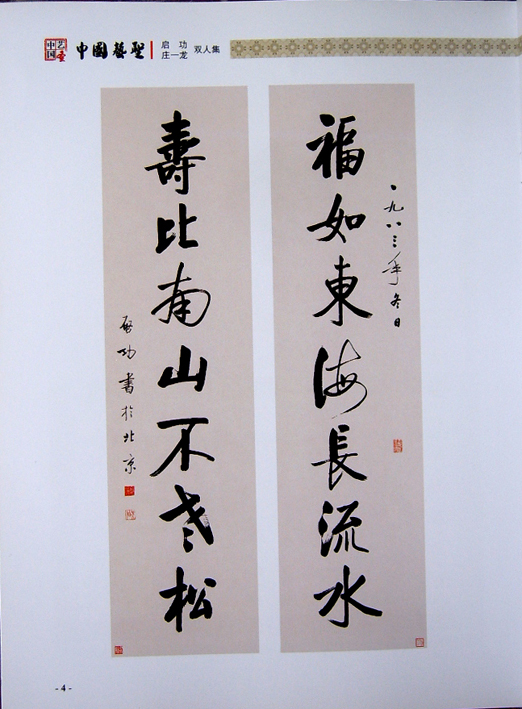 中国
艺圣
中國藝聖
启功
庄一龙
双人集
一九八三年冬日
福如東海長流水
壽比南山不老松
啟功書於北京
- 4 -